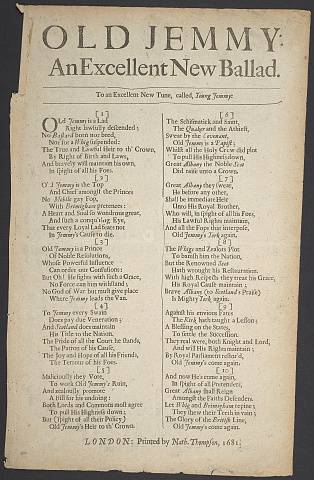 OLD JEMMY:
An Excellent New Ballad.
To an Excellent New Tune, called, Young Jemmy.
[1]
OLd Jemmy is a Lad
Right lawfully descended;
No Bastard born nor bred,
Nor for a Whig suspended;
The True and Lawful Heir to th' Crown,
By Right of Birth and Laws,
And bravely will maintain his own,
In spight of all his Foes.
[2]
Old Jemmy is the Top
And Chief amongst the Princes
No Mobile gay Fop,
With Birmingham pretences:
A Heart and Soul so wondrous great,
And such a conqu'ring Eye,
That every Loyal Lad fears not
In Jemmy's Cause to die.
[3]
Old Jemmy is a Prince
Of Noble Resolutions,
Whose Powerful Influence
Can order our Confusions:
But Oh! He fights with such a Grace,
No Force can him withstand;
No God of War but must give place
Where Jemmy leads the Van.
[4]
To Jemmy every Swain
Does pay due Veneration;
And Scotland does maintain
His Title to the Nation.
The Pride of all the Court he stands,
The Patron of his Cause,
The Joy and Hope of all his Friends,
The Terrour of his Foes.
[5]
Maliciously they Vote,
To work Old Jemmy's Ruin,
And zealously promote
A Bill for his undoing:
Both Lords and Commons most agree
To pull His Highness down;
But (spight of all their Policy)
Old Jemmy's Heir to th' Crown.
[6]
The Schismatick and Saint,
The Quaker and the Atheist,
Swear by the Covenant,
Old Jemmy is a Papist:
Whilst all the Holy Crew did plot
To pull His Highness down,
Great Albany the Noble Scot
Did raise unto a Crown.
[7]
Great Albany they swear,
He before any other,
Shall be immediate Heir
Unto His Royal Brother,
Who will, in spight of all his Foes,
His Lawful Rights maintain,
And all the Fops that interpose,
Old Jemmy's York again.
[8]
The Whigs and Zealots Plot
To banish him the Nation,
But the Renowned Scot
Hath wrought his Restauration.
With high Respects they treat his Grace,
His Royal Cause maintain;
Brave Albany (to Scotland's Praise)
Is Mighty York again.
[9]
Against his envious Fates
The Kirk hath taught a Lesson;
A Blessing on the States,
To settle the Succession.
They real were, both Knight and Lord,
And will His Rights maintain;
By Royal Parliament restor'd,
Old Jemmy's come again.
[10]
And now He's come again,
In spight of all Pretenders,
Great Albany shall Reign
Amongst the Faiths Defenders.
Let Whig and Brimingham repine;
They shew their Teeth in vain;
The Glory of the British Line,
Old Jemmy's come again.
LONDON: Printed by Nath. Thompson, 1681.